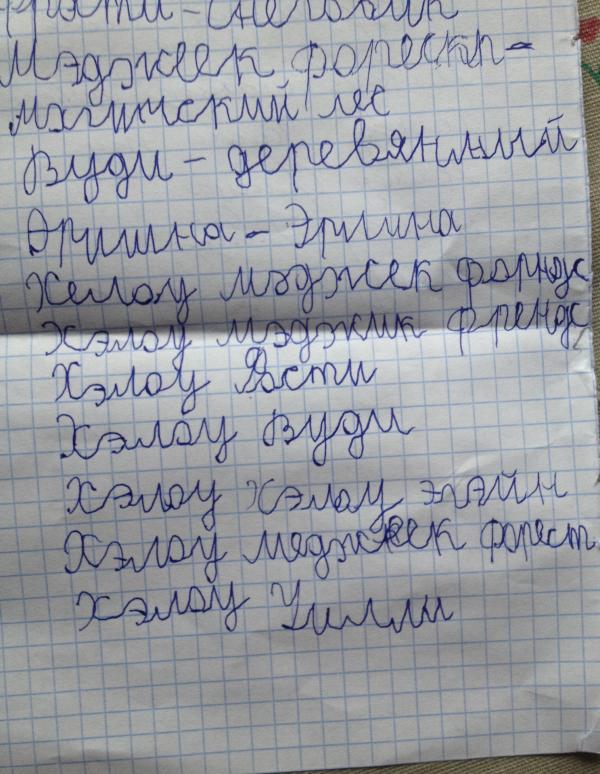 Фрости - снеговик
Мэджеек форескп-
магический лес
Вуди - деревянный
Эришна - Эрлина
Хелоу мэджек форндс
Хэлоу мэджик френдс
Хэлоу Фости
Хэлоу Вуди
Хэлоу хэлоу эгэйн
Хэлоу меджеек форест
Хэлоу Уилли